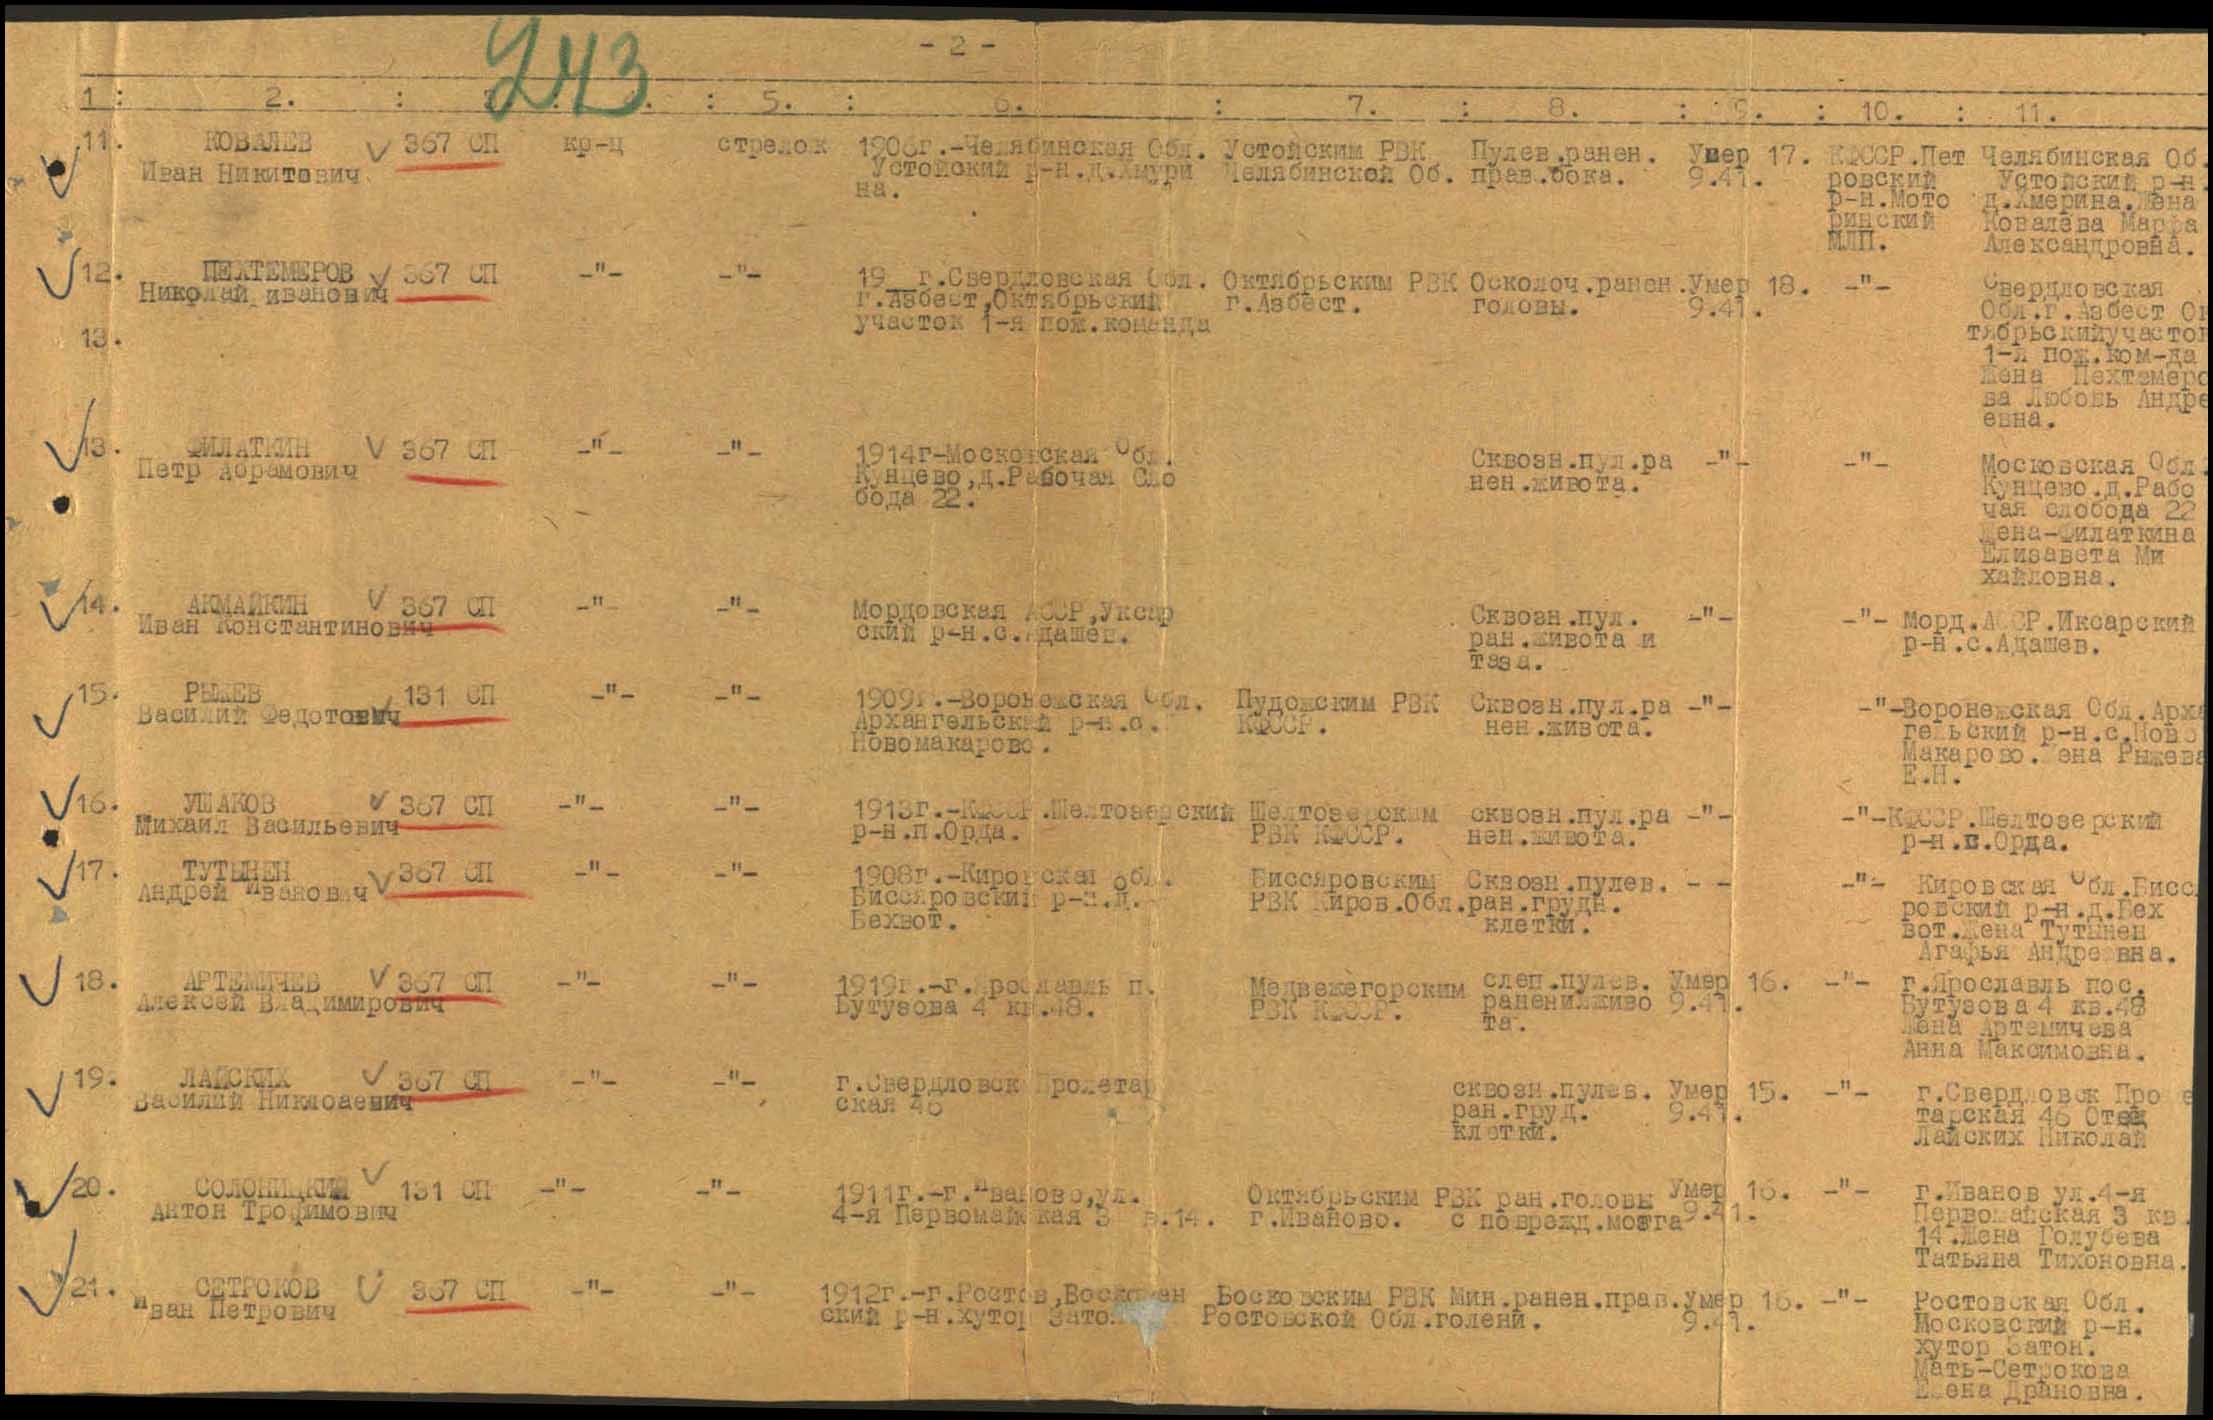 243
- 2 -
1 : 2. : 3 . : 5. : 6. : 7. : 8. : 9. : 10. : 11.
11. КОВАЛЕВ 367 СП кр-ц стрелок 1906г.-Челябинская Обл. Устойским РВК Пулев.ранен. Умер 17. КФССР.Пет Челябинская Об.
Иван Никитович Устойский р-н.д.Хмури Челябинской Об. прав.бока. 9.41. ровский Устойский р-н.
на. р-н.Мото д.Хмерина.Жена
ринский Ковалева Марфа
МЛП. Александровна.
12. ПЕХТЕМЕРОВ 367 СП -"- -"- 19__г.Свердловская Обл. Октябрьским РВК Осколоч.ранен. Умер 18. -"- Свердловская
Николай иванович г.Азбест,Октябрьский г.Азбест. головы. 9.41. Обл.г.Азбест Ок
участок 1-я пож.команда тябрьскийучасток
13. 1-я пож.ком-да
Жена Пехтемеро
ва Любовь Андре
евна.
13. ФИЛАТКИН 367 СП -"- -"- 1914г-Московская Обл. Сквозн.пул.ра -"- -"- Московская Обл.
Петр Абрамович Кунцево,д.Рабочая Сло нен.живота. Кунцево.д.Рабо
бода 22. чая слобода 22
Жена-Филаткина
Елизавета Ми
хайловна.
14. АКМАЙКИН 367 СП -"- -"- Мордовская АССР,Уксар Сквозн.пул. -"- -"- Морд.АССР.Иксарский
Иван Константинович ский р-н.с.Адашев. ран.живота и р-н.с.Адашев.
таза.
15. РЫЖЕВ 131 СП -"- -"- 1909г.-Воронежская Обл. Пудожским РВК Сквозн.пул.ра -"- -"- Воронежская Обл.Арха
Василий Федотович Архангельский р-н.с. КФССР. нен.живота. гельский р-н.с.Ново
Новомакарово. Макарово.Жена Рыжева
Е.Н.
16. УШАКОВ 367 СП -"- -"- 1913г.-КФССР.Шелтозерский Шелтозерским сквозн.пул.ра -"- -"- КФССР.Шелтозерский
Михаил Васильевич р-н.п.Орда. РВК КФССР. нен.живота. р-н.п.Орда.
17. ТУТЫНЕН 367 СП -"- -"- 1908г.-Кировская обл. Биссяровским Сквозн.пулев. - - -"- Кировская Обл.Бисся
Андрей Иванович Биссяровский р-н.д. РВК Киров.Обл. ран.грудн. ровский р-н.д.Бех
Бехвот. клетки. вот.Жена Тутынен
Агафья Андреевна.
18. АРТЕМИЧЕВ 367 СП -"- -"- 1919г.-г.Ярославль п. Медвежегорским слеп.пулев. Умер 16. -"- г.Ярославль пос.
Алексей Владимирович Бутузова 4 кв.48. РВК КФССР. ранениживо 9.41. Бутузова 4 кв.48
та. Жена Артемичева
Анна Максимовна.
19. ЛАЙСКИХ 367 СП -"- -"- г.Свердловск Пролетар сквозн.пулев. Умер 15. -"- г.Свердловск Про е
Василий Никлоаевич ская 46 ран.груд. 9.41. тарская 46 Отец
клетки. Лайских Николай
20. СОЛОНИЦКИЙ 131 СП -"- -"- 1911г.-г.Иваново,ул. Октябрьским РВК ран.головы Умер 16. -"- г.Иванов ул.4-я
Антон Трофимович 4-я Первомайская 3 в.14. г.Иваново. с поврежд.мозга 9.41. Первомайская 3 кв.
14.Жена Голубева
Татьяна Тихоновна.
21. СЕТРОКОВ 367 СП -"- -"- 1912г.-г.Ростов, Босковским РВК Мин.ранен.прав. умер 16. -"- Ростовская Обл.
Иван Петрович ский р-н.хутор Затон Ростовской Обл. голени. 9.41. Московский р-н.
хутор Затон.
Мать-Сетрокова
Елена Драновна.